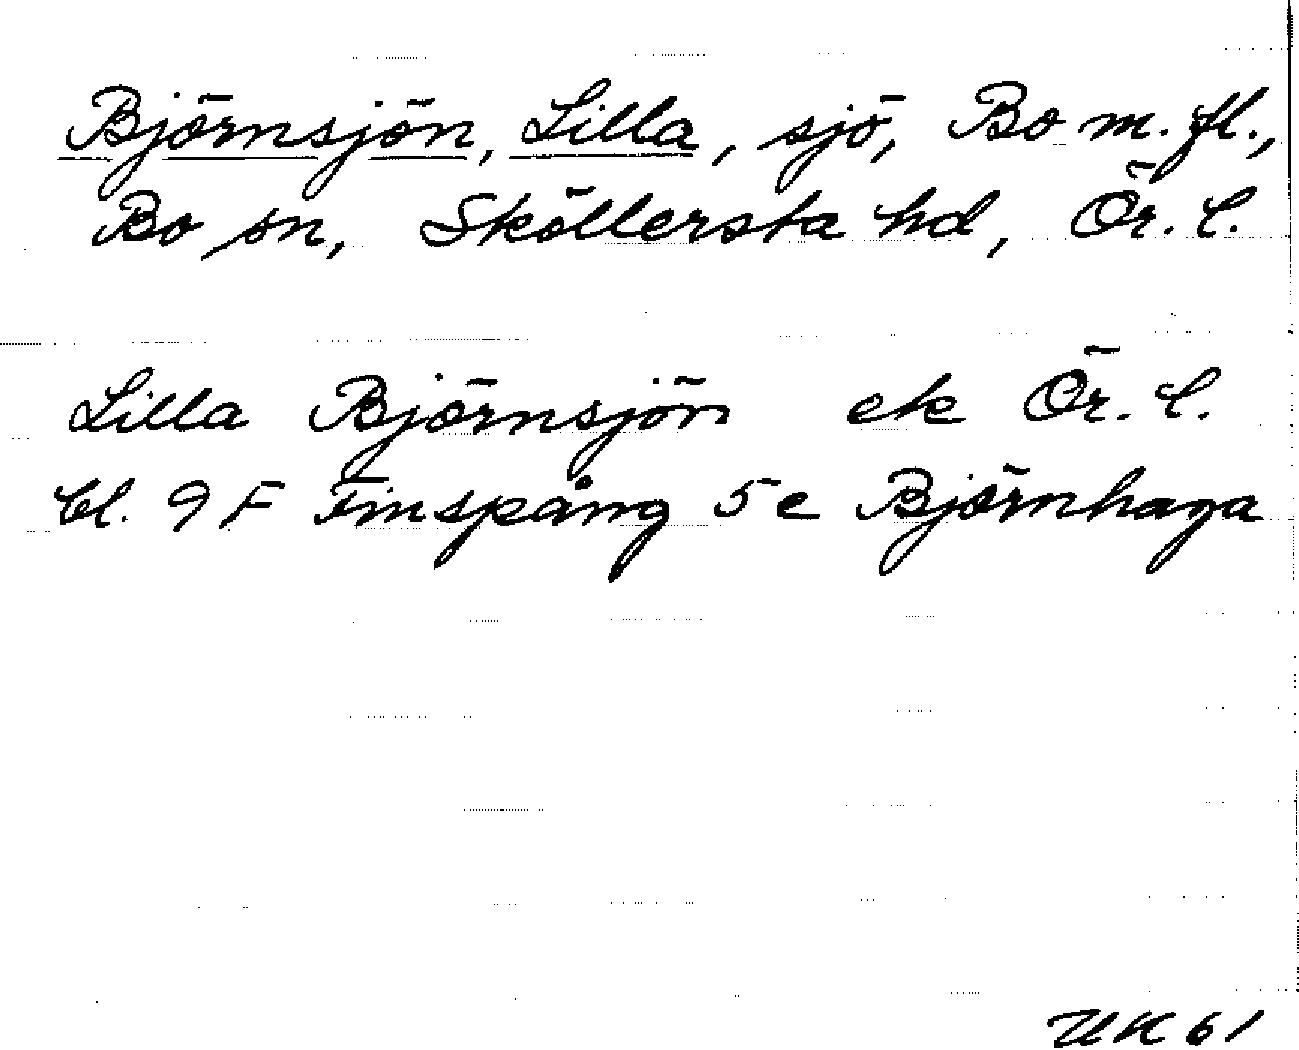 Björnsjön, Lilla, sjö, Bo m. fl.,
Bo sn, Sköllersta hd, Ör. l.
Lilla Björnsjön ek Ör. l.
bl. 9 F Finspång 5 e Björnhaga
UK 61